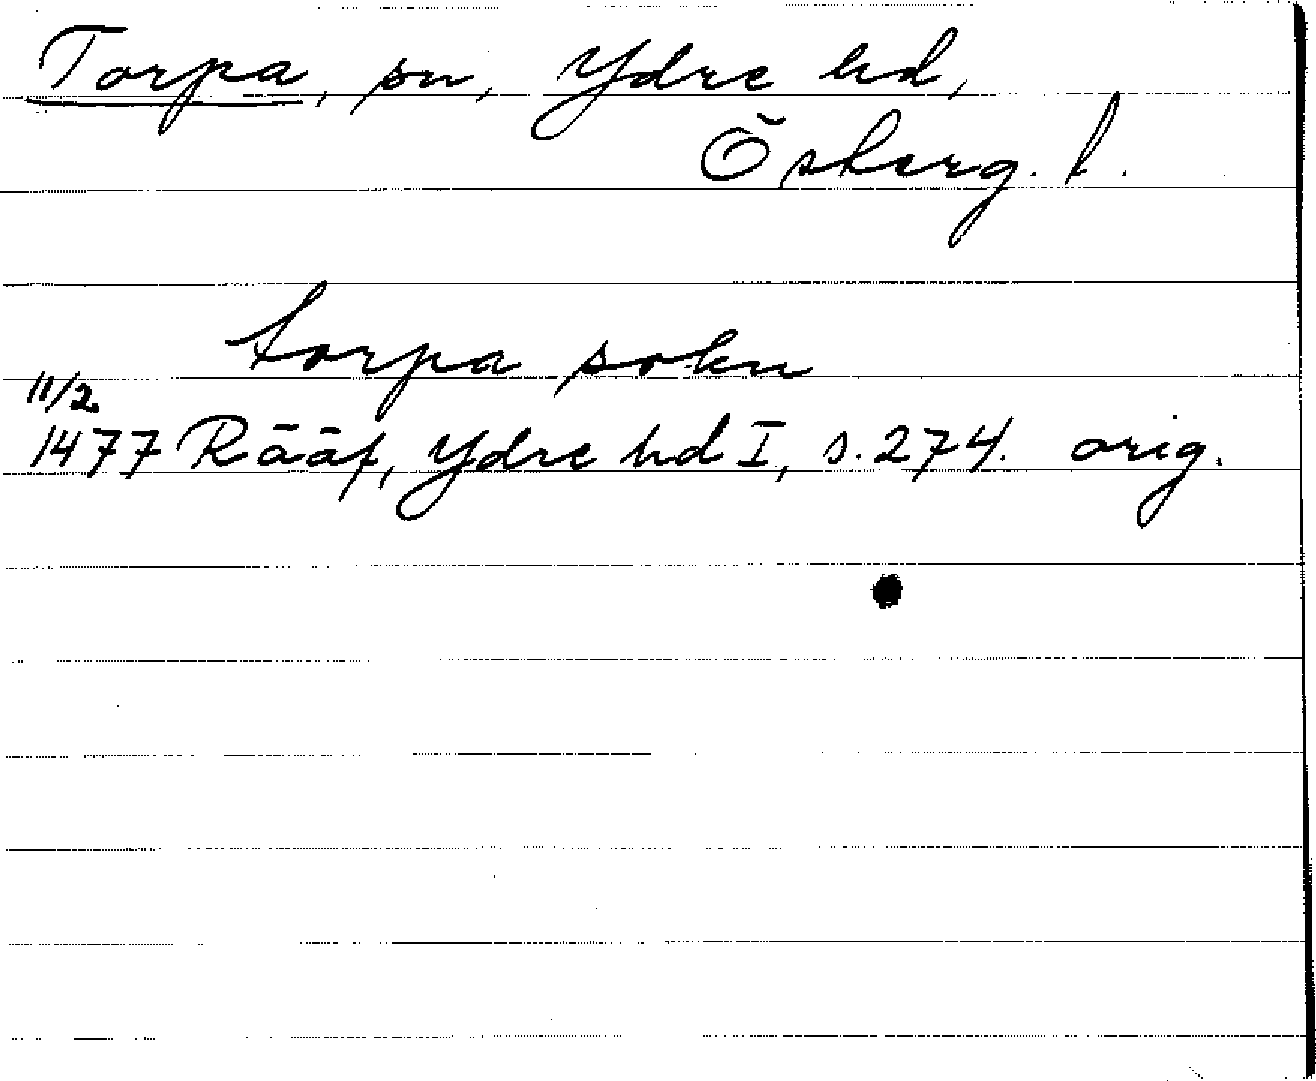 Torpa, sn, Ydre hd,
Österg. l.
torpa sokn
11/2.
1477 Rääf, Ydre hd I, s. 274. orig.